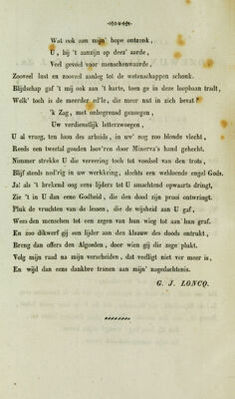 Wat ook aan mijn' hope ontzonk,
U, bij 't aanzijn op deez' aarde,
Veel gevoel voor menschenwaarde,
Zooveel lust en zooveel aanleg tot de wetenschappen schonk.
Blijdschap gaf 't mij ook aan 't harte, toen ge in deez loopbaan tradt,
Welk' toch is de meerder ed'le, die meer nut in zich bevat?
'k Zag, met onbegrensd genoegen,
Uw verdienstlijk letterzwoegen,
U al vraag, ten loon des arbeids, in uw' nog zoo blonde vlecht,
Reeds een twectal gouden loov'ren door Minerva's hand gehecht.
Nimmer strekke U die vereering toch tot voedsel van den trots,
Blijf steeds ned'rig in uw werkkring, slechts een weldoende engel Gods.
Ja! als 't brekend oog eens lijders tot U smachtend opwaarts dringt,
Zie 't in U dan eene Godheid, die den dood zijn prooi ontwringt.
Pluk de vruchten van de lessen, die de wijsheid aan U gaf,
Wees den menschen tot een zegen van hun wieg tot aan hun graf.
En zoo dikwerf gij een lijder aan den klaauw des doods ontrukt,
Breng dan offers den Algoeden, door wien gij die zege plukt.
Volg mijn raad na mijn verscheiden, dat veelligt niet ver meer is,
En wijd dan eens dankbre tranen aan mijn' nagedachtenis.
G. J. LONCQ.